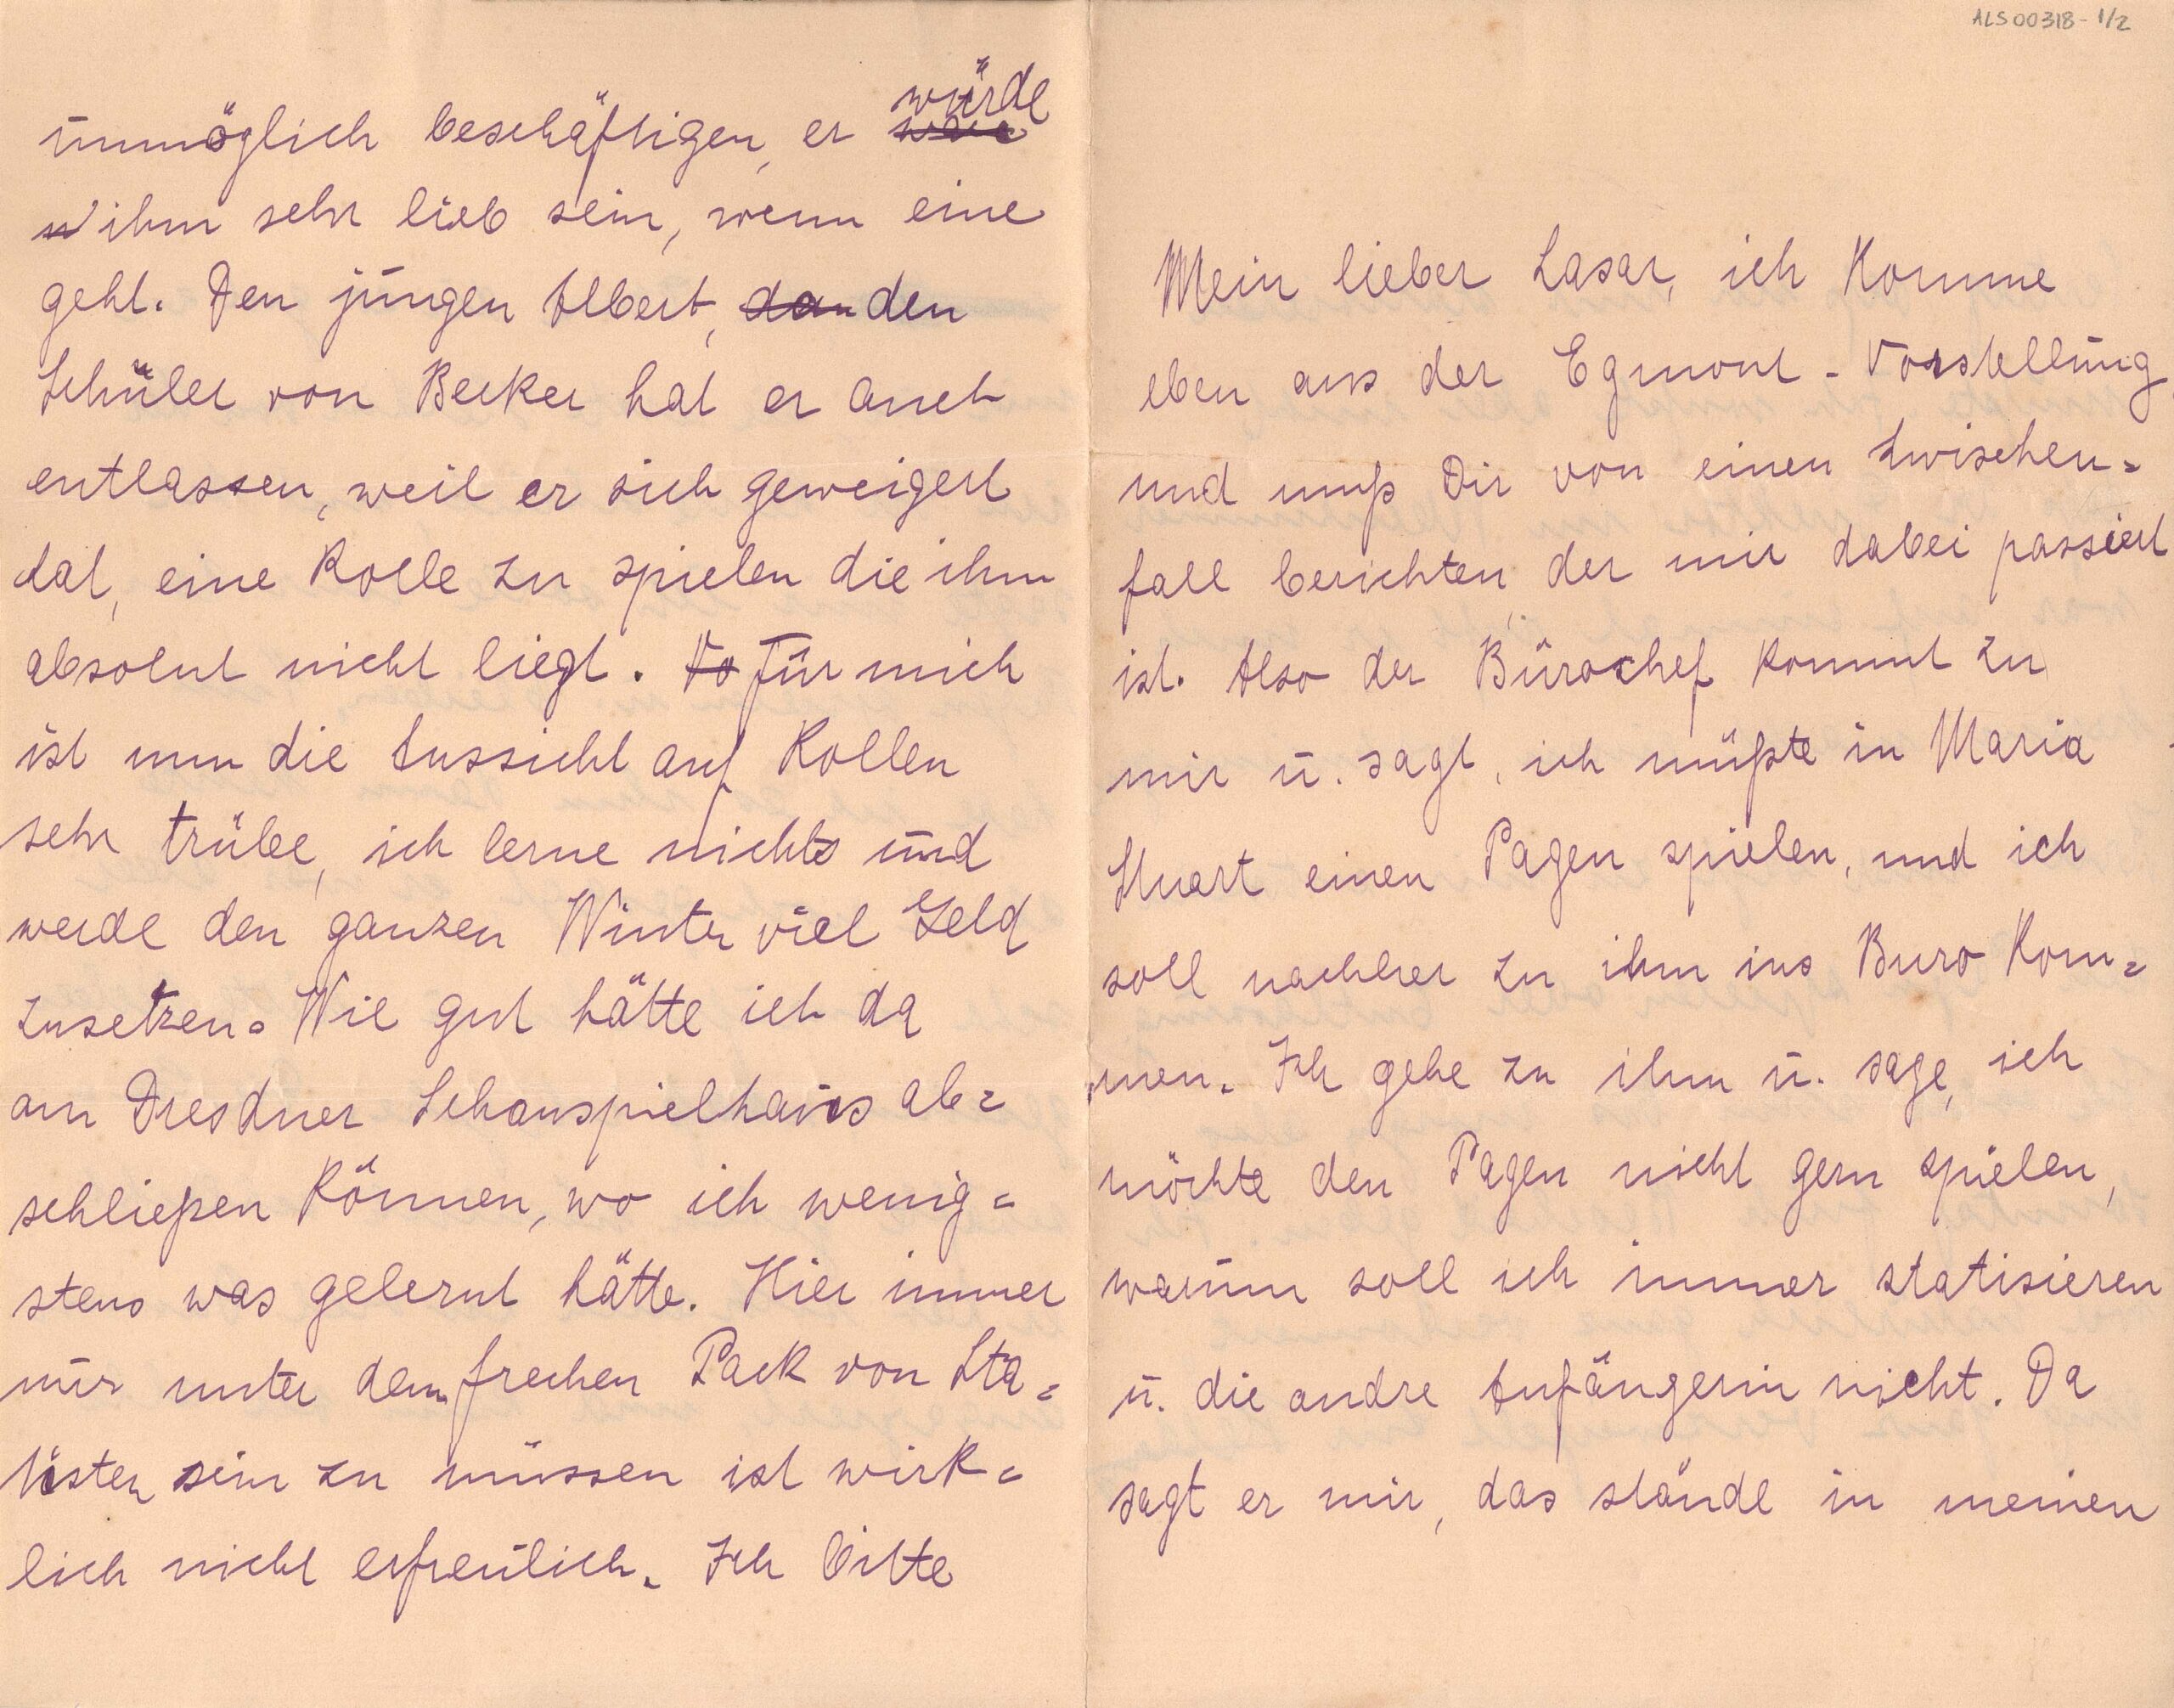 ALS00318-1/2
Mein lieber Lasar, ich komme
eben aus der Egmont-Vorstellung
und muß Dir von einen Zwischen=
fall berichten, der mir dabei passiert
ist. Also der Bürochef kommt zu
mir u. sagt, ich müßte in Maria
Stuart einen Pagen spielen, und ich
soll nachher zu ihm ins Buro kom=
men. Ich gehe zu ihm u. sage, ich
möchte den Pagen nicht gern spielen,
warum soll ich immer statisieren
u. die andre Anfängerin nicht. Da
sagt er mir, das stände in meinen
unmöglich beschäftigen, er würde
ihm sehr lieb sein, wenn eine
geht. Den jungen Albert, den
Schüler von Becker hat er auch
entlassen, weil er sich geweigert
hat, eine Rolle zu spielen die ihm
absolut nicht liegt. Für mich
ist nun die Aussicht auf Rollen
sehr trübe, ich lerne nichts und
werde den ganzen Winter viel Geld
zusetzen. Wie gut hätte ich da
am Dresdner Schauspielhaus ab=
schließen können, wo ich wenig=
stens was gelernt hätte. Hier immer
nur unter dem frechen Pack von Sta=
tisten sein zu müssen ist wirk=
lich nicht erfreulich. Ich bitte